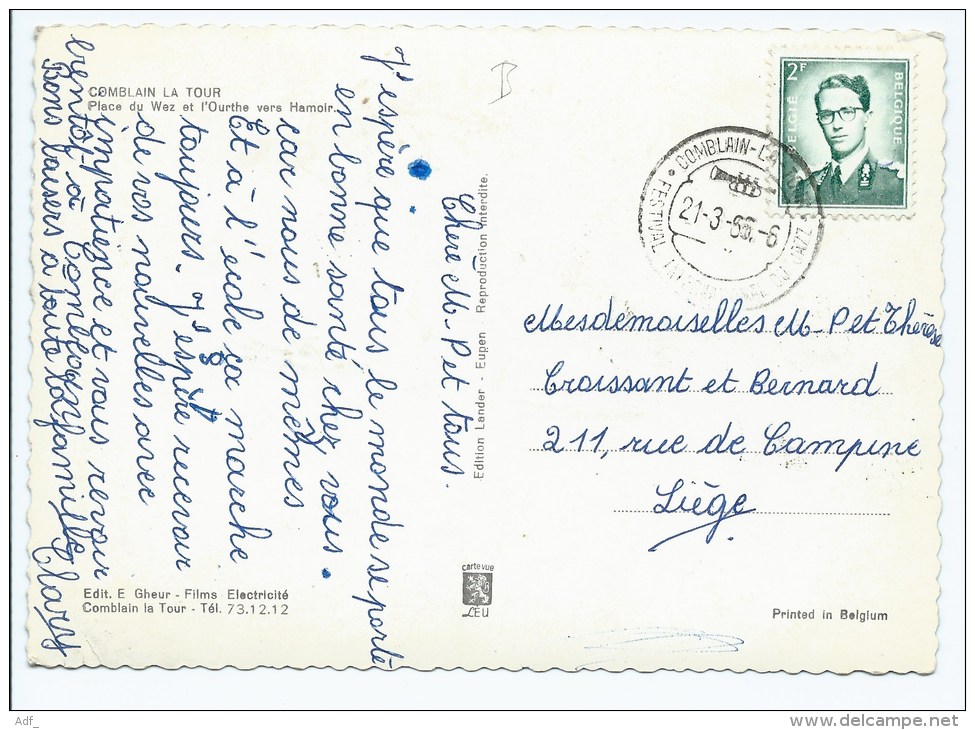 COMBLAIN LA TOUR
Place du Wez et l'Ourthe vers Hamoir.
B
2F
BELGIË
BELGIQUE
COMBLAIN-LA
21-3-6 -6
FESTIVAL
Chère M-P et tous.
J'espère que tous le monde se porte
en bonne santé chez vous.
car nous de mêmes
Et à l'école ça marche
toujours. J'espère recevoir
de vos nouvelles avec
impatience et vous revoir
bientôt à Comblain
Bons baisers a toute la famille
Clary
Edition Lander - Eupen. Reproduction interdite.
Mesdemoiselles M-P et Thérèse
Croissant et Bernard
211, rue de Campine
Liège
carte vue
LEU
Edit. E Gheur - Films Electricité
Comblain la Tour - Tél. 73.12.12
Printed in Belgium
Adf_
www.delcampe.net